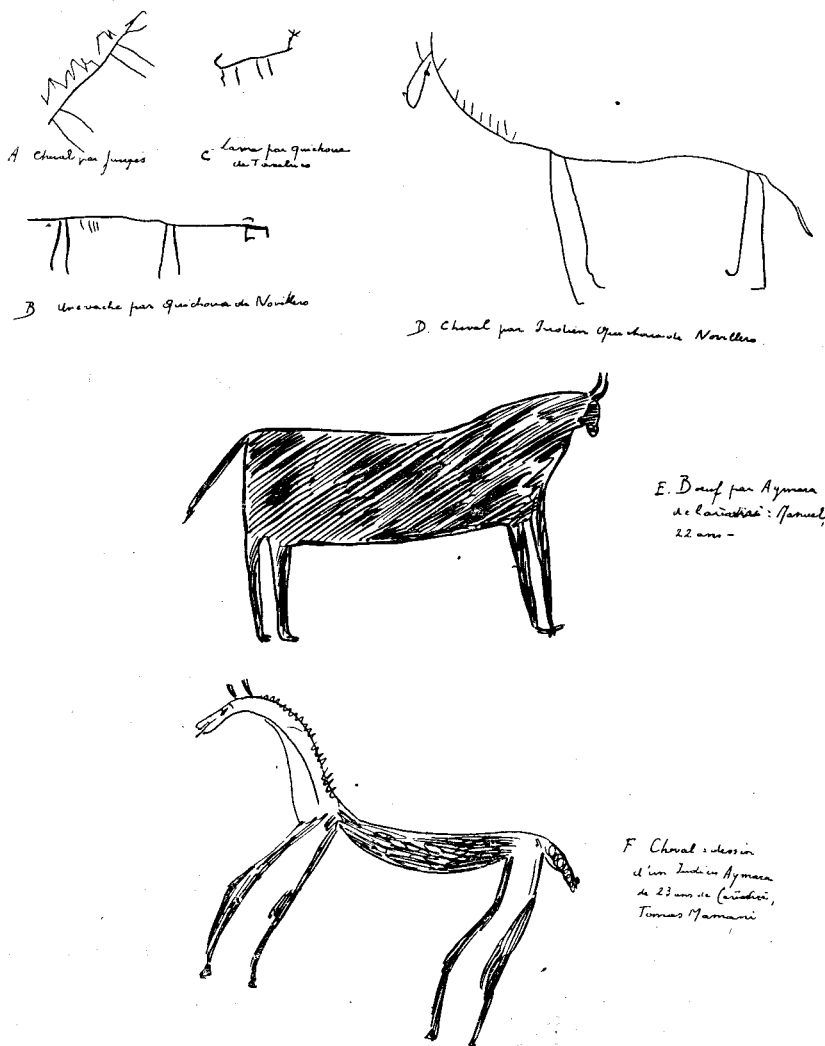 A Cheval par Jungas
C Lama par quichoua
de Tarabuco
B Une vache par Quichoua de Novillero
D. Cheval par Indien Quichoua de Novillero
E. Bœuf par Aymara
de : Manuel,
22 ans -
F Cheval : dessin
d'un Indien Aymara
de 23 ans de
Tomas Mamani